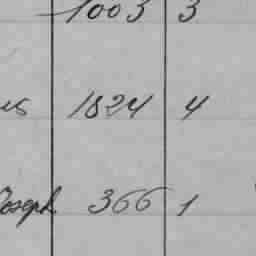 1003 3
1824 4
Joseph 366 1